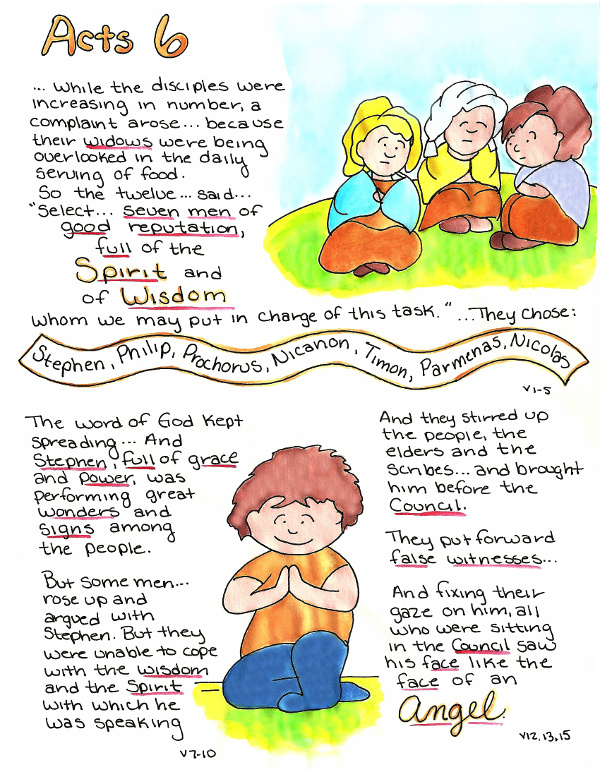 Acts 6
... while the disciples were
increasing in number, a
complaint arose... because
their widows were being
overlooked in the daily
serving of food.
So the twelve... said...
"Select... seven men of
good reputation,
full of the
Spirit and
of Wisdom
whom we may put in charge of this task." ...They chose:
Stephen, Philip, Prochorus, Nicanon, Timon, Parmenas, Nicolas
v1-5
The word of God kept
spreading... And
Stephen, full of grace
and power, was
performing great
wonders and
signs among
the people.
But some men...
rose up and
argued with
Stephen. But they
were unable to cope
with the wisdom
and the Spirit
with which he
was speaking
v7-10
And they stirred up
the people, the
elders and the
scribes... and brought
him before the
Council.
They put forward
false witnesses...
And fixing their
gaze on him, all
who were sitting
in the Council saw
his face like the
face of an
Angel.
v12,13,15